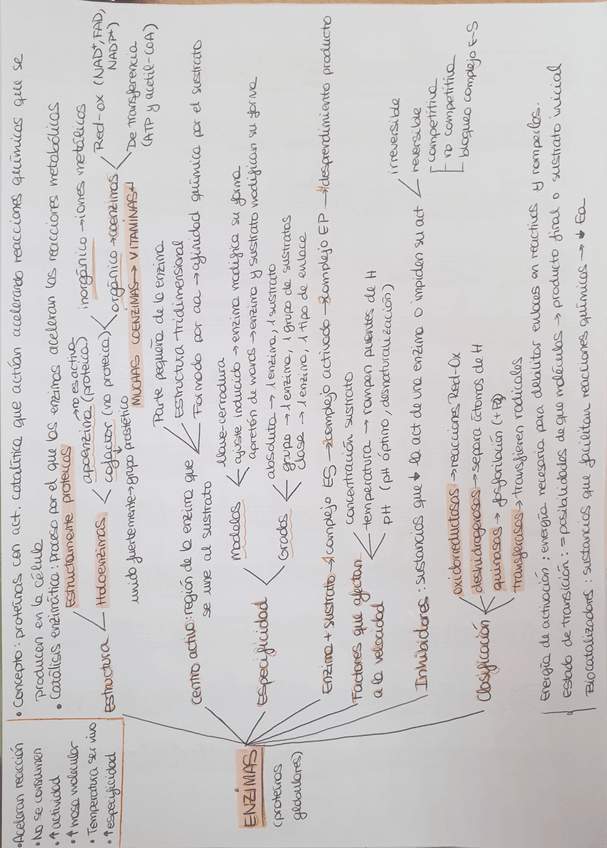 • Aceleran reacción
• No se consumen
• ↑ actividad
• ↑ masa molecular
• Temperatura ser vivo
• ↑ especificidad
• Concepto: proteínas con act. catalítica que actúan acelerando reacciones químicas que se
producen en la célula
• Catálisis enzimática: Proceso por el que las enzimas aceleran las reacciones metabólicas
ENZIMAS
(proteínas
globulares)
Estructura
Estrictamente proteicas
Holoenzimas
→ no es activa
apoenzima (proteica)
cofactor (no proteica)
unido fuertemente → grupo prostético
inorgánico → iones metálicos
orgánico → coenzimas
MUCHAS COENZIMAS → VITAMINAS
Red-ox (NAD+, FAD,
NADP+)
De transferencia
(ATP y acetil-CoA)
Centro activo: región de la enzima que
se une al sustrato
Parte pequeña de la enzima
Estructura tridimensional
Formado por aa → afinidad química por el sustrato
Especificidad
Modelos
llave-cerradura
ajuste inducido → enzima modifica su forma
apretón de manos → enzima y sustrato modifican su forma
Grados
absoluta → 1 enzima, 1 sustrato
grupo → 1 enzima, 1 grupo de sustratos
clase → 1 enzima, 1 tipo de enlace
Enzima + sustrato → complejo ES → complejo activado → complejo EP → desprendimiento producto
Factores que afectan
a la velocidad
concentración sustrato
temperatura → rompen puentes de H
pH (pH óptimo, desnaturalización)
Inhibidores: sustancias que ↓ la act de una enzima o impiden su act
irreversible
reversible
competitiva
no competitiva
bloqueo complejo E-S
Clasificación
oxidorreductasas → reacciones Red-Ox
deshidrogenasas → separa átomos de H
quinasas → fosforilación (+P)
transferasas → transfieren radicales
Energía de activación: energía necesaria para debilitar enlaces en reactivos y romperlos.
Estado de transición: = posibilidades de que moléculas → producto final o sustrato inicial
Biocatalizadores: sustancias que facilitan reacciones químicas → ↓ Ea